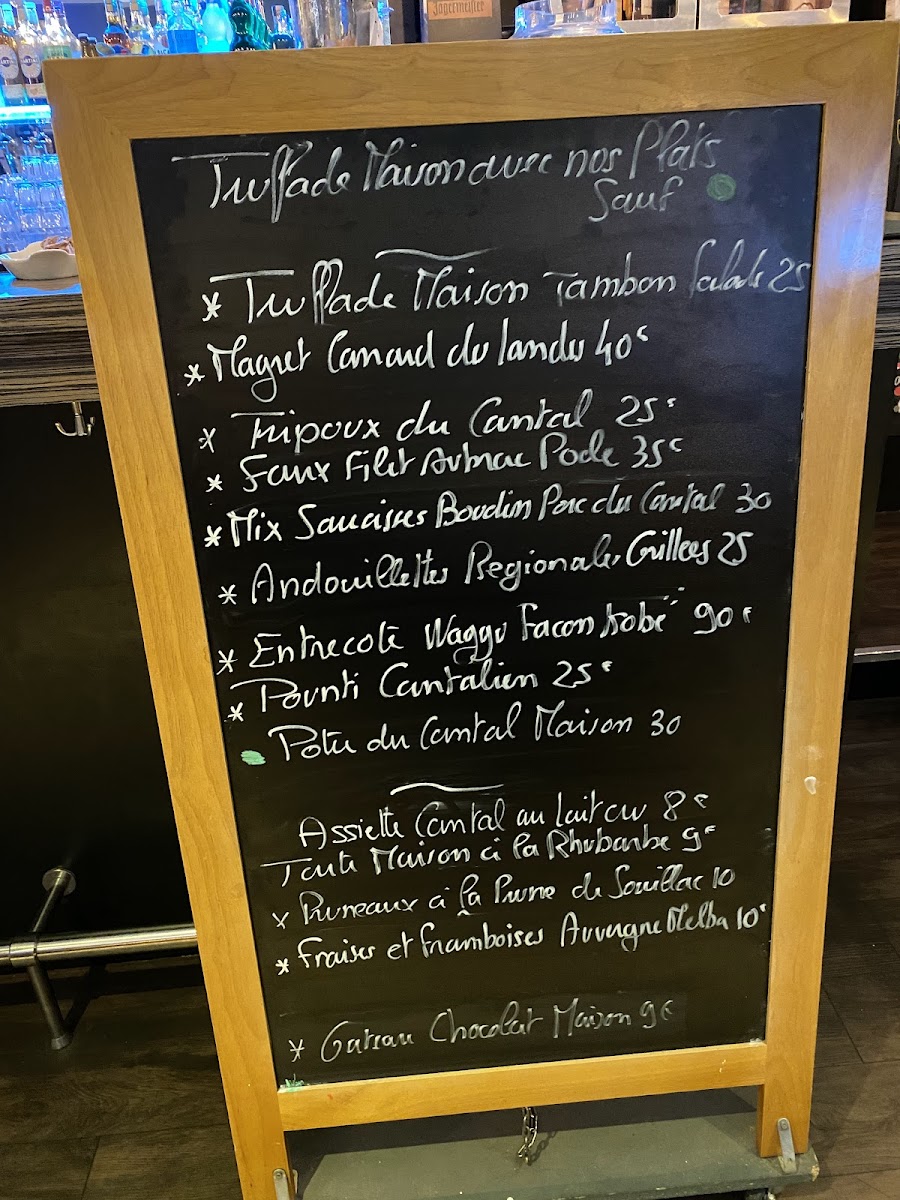 Jägermeister
Truffade Maison avec nos Plats
Sauf
* Truffade Maison Jambon Salade 25
* Magret Canard des landes 40€
* Tripoux du Cantal 25€
* Faux Filet Aubrac Poele 35€
* Mix Saucisses Boudin Porc du Cantal 30
* Andouillettes Regionales Grillees 25
* Entrecote Waggu Facon Kobé 90€
* Pounti Cantalien 25€
Potée du Cantal Maison 30
Assiette Cantal au lait cru 8€
Tarte Maison à la Rhubarbe 9€
* Pruneaux à la Prune de Souillac 10
* Fraises et framboises Auvergne Melba 10€
* Gateau Chocolat Maison 9€